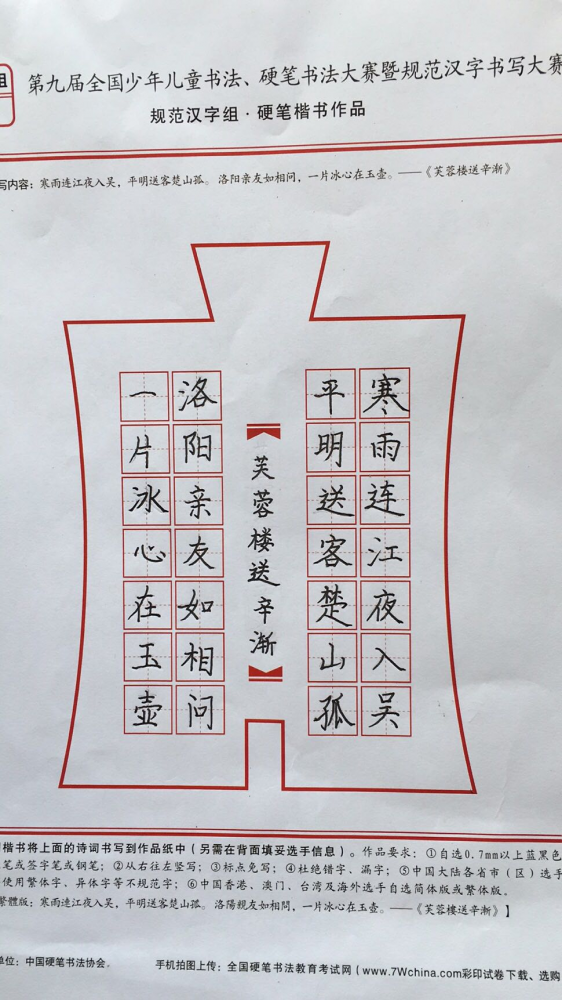 组
第九届全国少年儿童书法、硬笔书法大赛暨规范汉字书写大赛
规范汉字组·硬笔楷书作品
写内容：寒雨连江夜入吴，平明送客楚山孤。洛阳亲友如相问，一片冰心在玉壶。——《芙蓉楼送辛渐》
寒雨连江夜入吴
平明送客楚山孤
芙蓉楼送辛渐
洛阳亲友如相问
一片冰心在玉壶
楷书将上面的诗词书写到作品纸中（另需在背面填妥选手信息）。作品要求：①自选0.7mm以上蓝黑色
笔或签字笔或钢笔；②从右往左竖写；③标点免写；④杜绝错字、漏字；⑤中国大陆各省市（区）选手
使用繁体字、异体字等不规范字；⑥中国香港、澳门、台湾及海外选手自选简体版或繁体版。
繁體版：寒雨連江夜入吴，平明送客楚山孤。洛陽親友如相問，一片冰心在玉壺。——《芙蓉樓送辛漸》】
单位：中国硬笔书法协会。 手机拍图上传：全国硬笔书法教育考试网（www.7Wchina.com彩印试卷下载、选购